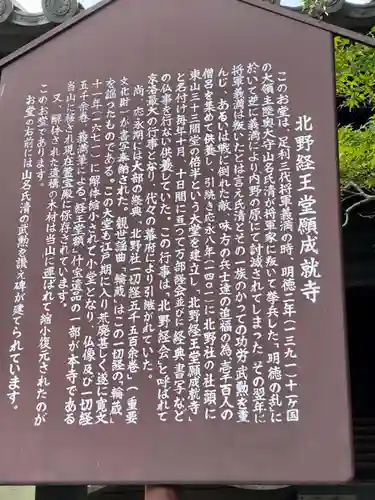 北野経王堂願成就寺
このお堂は、足利三代将軍義満の時、明徳二年(一三九一)十一ヶ国
の大領主陸奥大守山名氏清が将軍家に叛いて挙兵した、明徳の乱に
於いて逆に義満により内野の原にて討滅されてしまった。その翌年に
将軍義満は叛いたとは言え氏清とその一族のかつての功労・武勲を重
んじ、あるいは戦に倒れた敵、味方の兵士達の追福の為、壱千百人の
僧侶を集めて供養し、引続き応永八年(一四〇一)に北野社の社頭に
東山三十三間堂の倍半という大堂を建立し、「北野経王堂願成就寺」
と名付け毎年十月、十日間に亘って万部経会並びに経典書写など
の仏事を行ない供養していた。この行事は、「北野経会」と呼ばれて
京洛最大の行事となり、代々の幕府により引継がれていた。
尚、応永年には本部の祭典、北野社一切経「五千五百余巻」(重要
文化財)が書写奉納された。観世謡曲、「輪蔵」はこの一切経の「輪蔵」
を謡ったものである。この大堂も江戸期に入り荒廃甚しく遂に寛文
十一年(一六七一)に解体縮小されて小堂となり、仏像及び一切経
五千余巻、義満筆による経王堂額、什宝遺品の一部が本寺である
当山に移され現在霊宝殿に保存されています。
又、解体された遺構の木材は当山に運ばれて縮小復元されたのが
このお堂であります。
お堂の右前には山名氏清の武勲を讃え碑が建てられています。